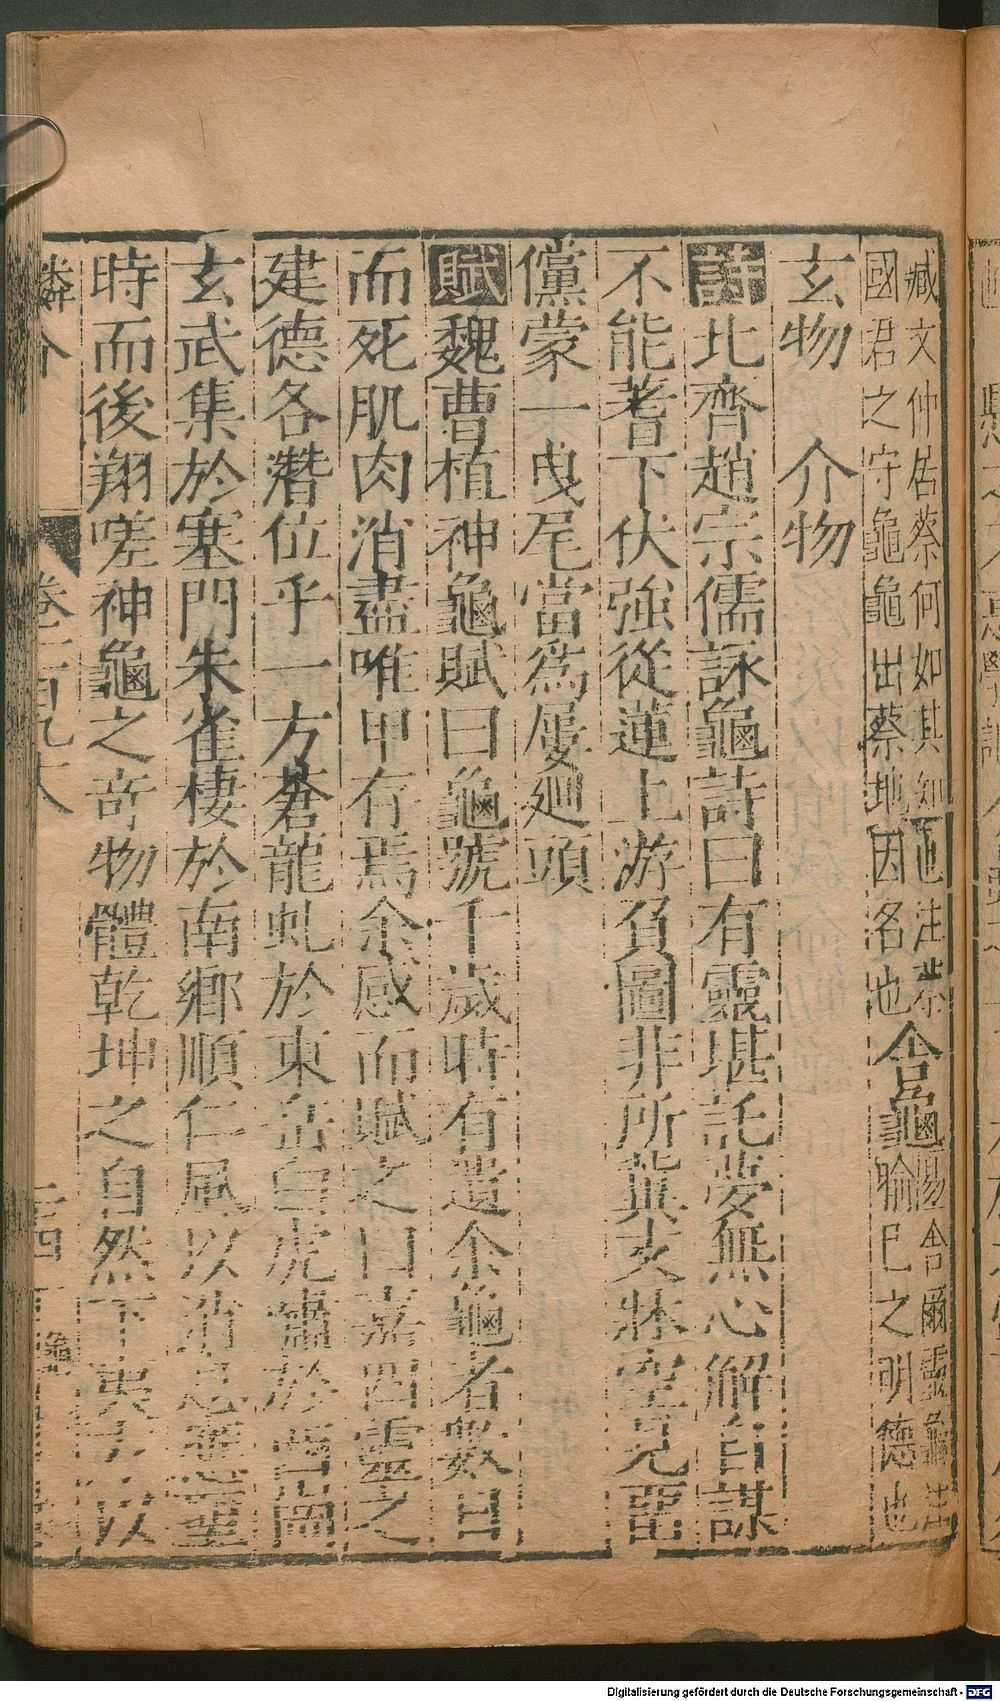 臧文仲居蔡何如其知也注蔡
國君之守龜龜出蔡地因名也舍龜易舍爾靈龜注
喻巳之明德也
玄物　介物
詩北齊趙宗儒詠龜詩曰有靈堪託夢無心解自謀
不能蓍下伏強從蓮上游負圖非所冀支牀空見
儻蒙一曳尾當為屢廻頭
賦魏曹植神龜賦曰龜號千歲時有遺余龜者數日
而死肌肉消盡唯甲存焉余感而賦之曰嘉四靈之
建德各潛位乎一方蒼龍虬於東岳白虎嘯於西岡
玄武集於塞門朱雀棲於南鄉順仁風以消息應聖
時而後翔嗟神龜之奇物體乾坤之自然下夷方以
鱗介
卷二百九十八
二四
龜
Digitalisierung gefördert durch die Deutsche Forschungsgemeinschaft - DFG